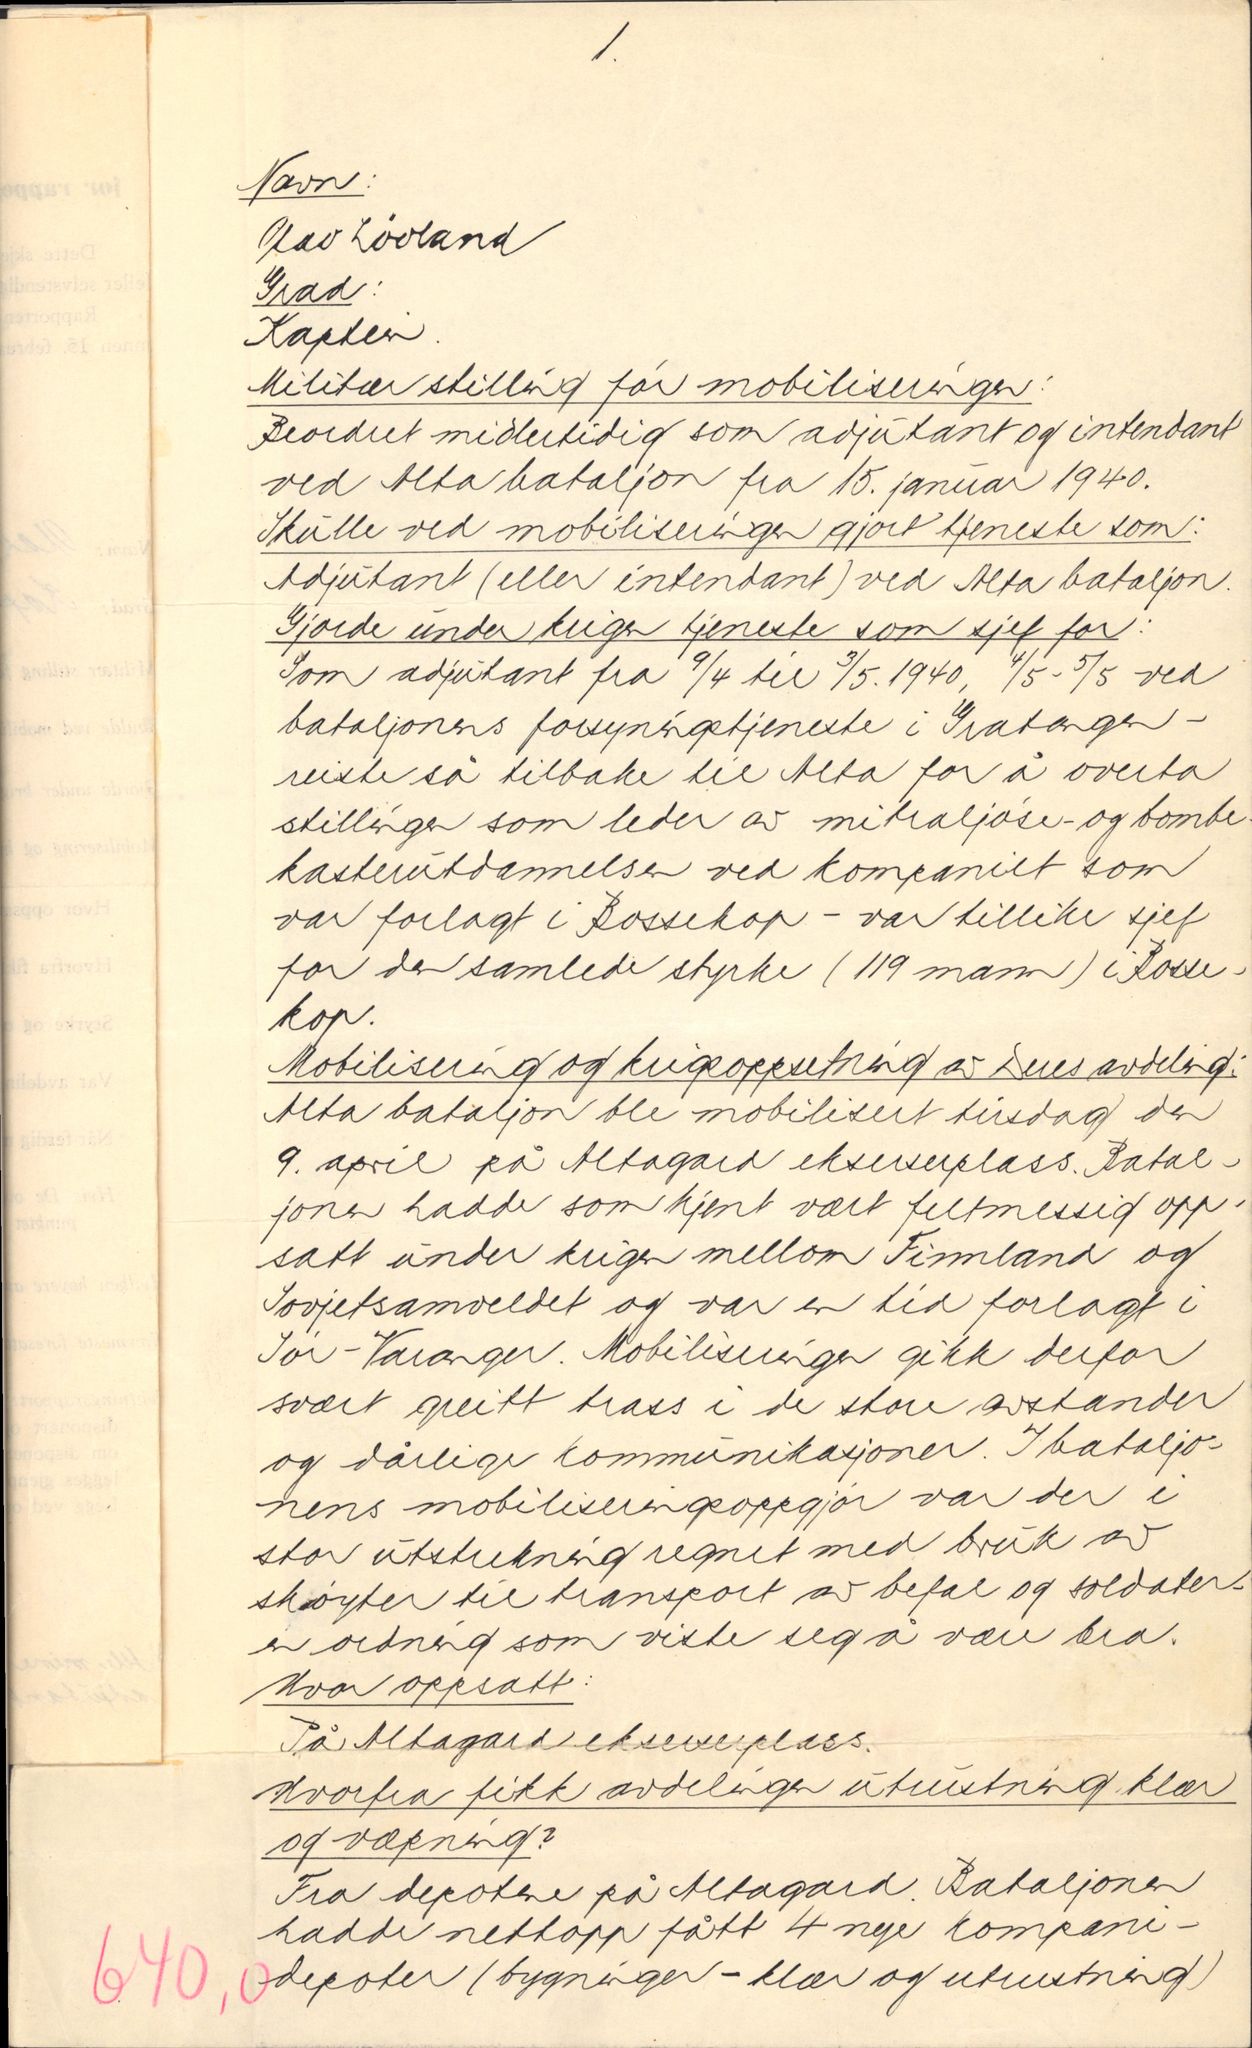 1.
Navn:
Olav Lövland
Grad:
Kaptein.
Militær stilling för mobiliseringen:
Beordret midlertidig som adjutant og intendant
ved Alta bataljon fra 15. januar 1940.
Skulle ved mobiliseringen gjort tjeneste som:
Adjutant (eller intendant) ved Alta bataljon.
Gjorde under krigen tjeneste som sjef for:
Som adjutant fra 9/4 til 3/5. 1940, 4/5 - 5/5 ved
bataljonens forsyningstjeneste i Gratangen -
reiste så tilbake til Alta for å overta
stillingen som leder av mitraljöse- og bombe-
kasterutdannelsen ved kompaniet som
var forlagt i Bossekop - var tillike sjef
for den samlede styrke (119 mann) i Bosse-
kop.
Mobilisering og krigsoppsetning av Deres avdeling:
Alta bataljon ble mobilisert tirsdag den
9. april på Altagard ekserserplass. Batal-
jonen hadde som kjent vært feltmessig opp-
satt under krigen mellom Finnland og
Sovjetsamveldet og var en tid forlagt i
Sör-Varanger. Mobiliseringen gikk derfor
svært greitt trass i de store avstander
og dårlige kommunikasjoner. I bataljo-
nens mobiliseringsoppgjör var der i
stor utstrekning regnet med bruk av
sköyter til transport av befal og soldater -
en ordning som viste seg å være bra.
Hvor oppsatt:
På Altagard ekserserplass.
Hvorfra fikk avdelingen utrustning klær
og væpning?
Fra depotene på Altagard. Bataljonen
hadde nettopp fått 4 nye kompani-
depoter (bygninger - klær og utrustning)
640,0